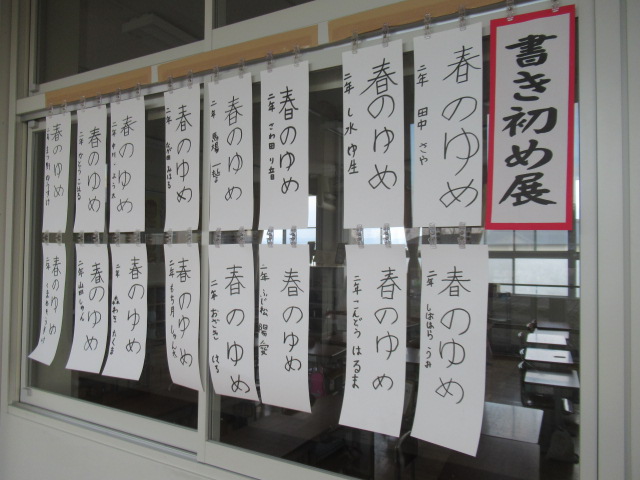 書き初め展
春のゆめ
二年 田中 さや
春のゆめ
二年 し水 ゆ生
春のゆめ
二年 さわ田 り音
春のゆめ
二年 馬場 一哲
春のゆめ
二年
春のゆめ
二年 中川
春のゆめ
二年
春のゆめ
春のゆめ
二年 しばはら うみ
春のゆめ
二年 こんどう はるま
春のゆめ
二年 ふじ松 陽安
春のゆめ
二年 おざき はち
春のゆめ
二年 もち月
春のゆめ
二年
春のゆめ
二年 山田 しゅん
春のゆめ
二年